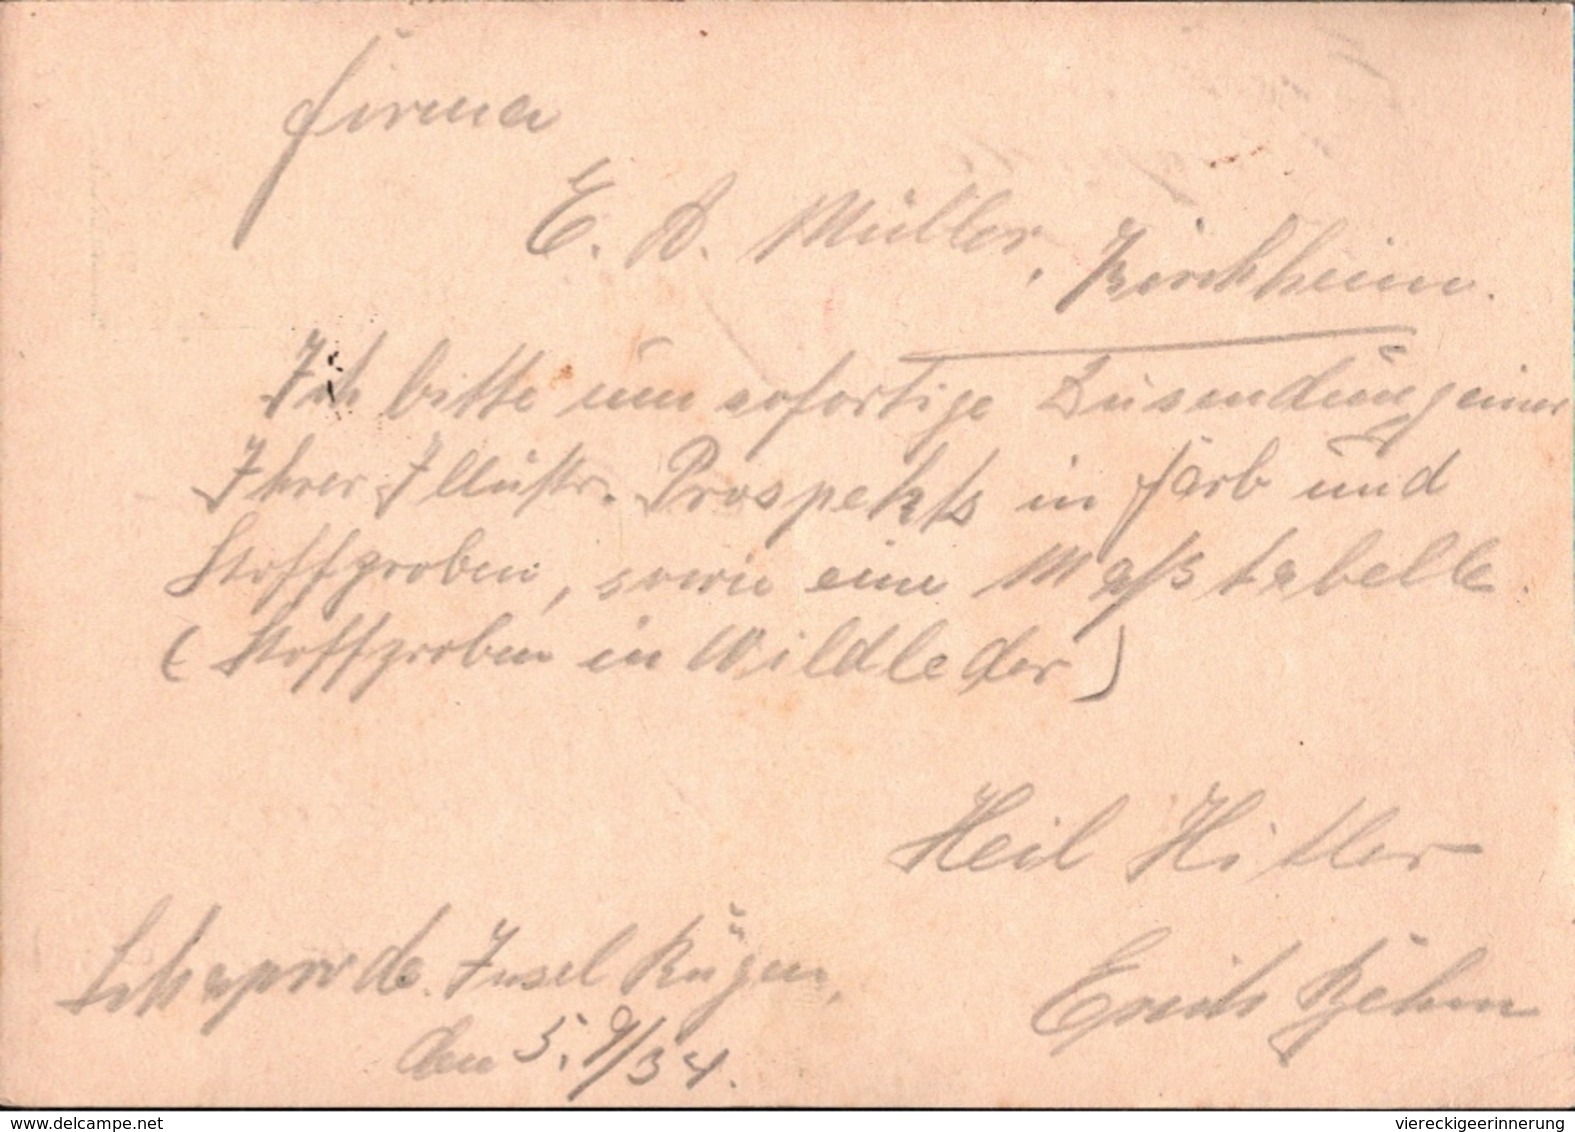 Firma
E. D. Müller, Kirchheim.
Ich bitte um sofortige Zusendung einer
Ihrer Illustr. Prospekts in Farb und
Stoffproben, sowie eine Maßtabelle.
(Stoffproben in Wildleder)
Heil Hitler
Schaprode. Insel Rügen,
Erich Böhm
den 5. 9/34.
www.delcampe.net
viereckigeerinnerung